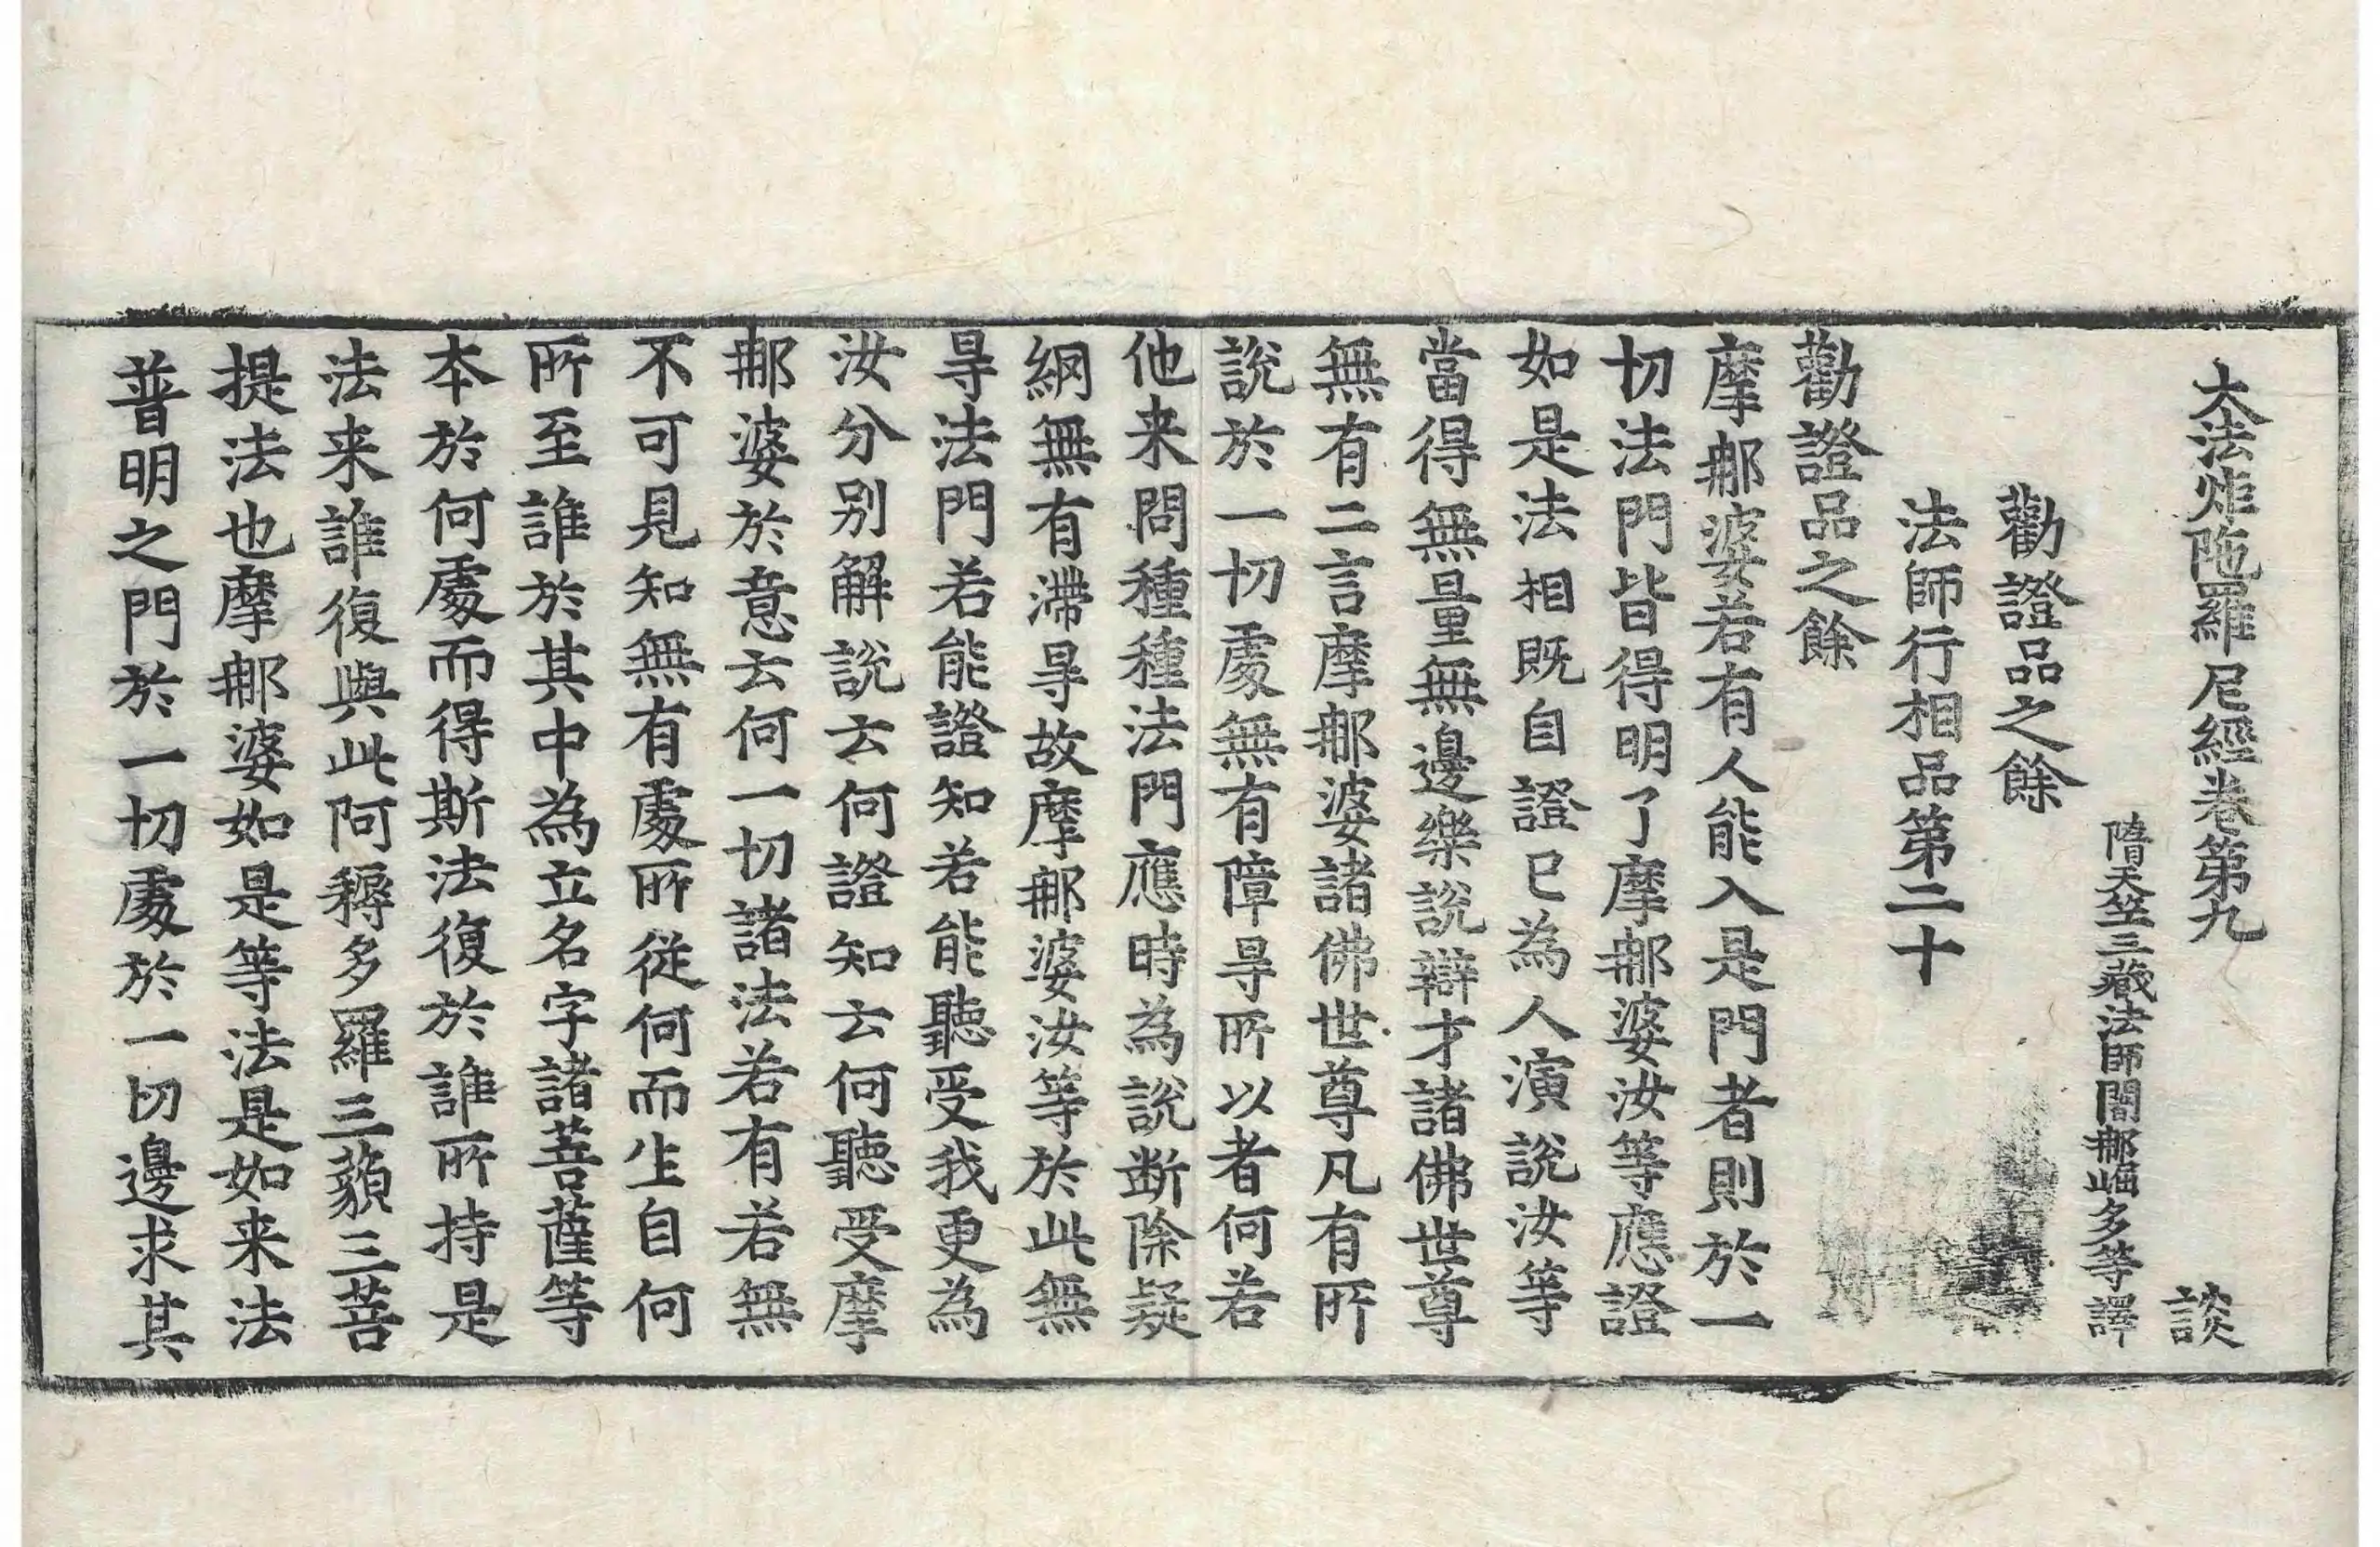 大法炬陁羅尼經卷第九　談
隋天竺三藏法師闍郍崛多等譯
勸證品之餘
法師行相品第二十
勸證品之餘
摩郍婆若有人能入是門者則於一
切法門皆得明了摩郍婆汝等應證
如是法相旣自證已為人演說汝等
當得無量無邊樂說辯才諸佛世尊
無有二言摩郍婆諸佛世尊凡有所
說於一切處無有障㝵所以者何若
他来問種種法門應時為說断除疑
網無有滯㝵故摩郍婆汝等於此無
㝵法門若能證知若能聽受我更為
汝分别解說云何證知云何聽受摩
郍婆於意云何一切諸法若有若無
不可見知無有處所從何而生自何
所至誰於其中為立名字諸菩薩等
本於何處而得斯法復於誰所持是
法来誰復與此阿耨多羅三藐三菩
提法也摩郍婆如是等法是如来法
普明之門於一切處於一切邊求其